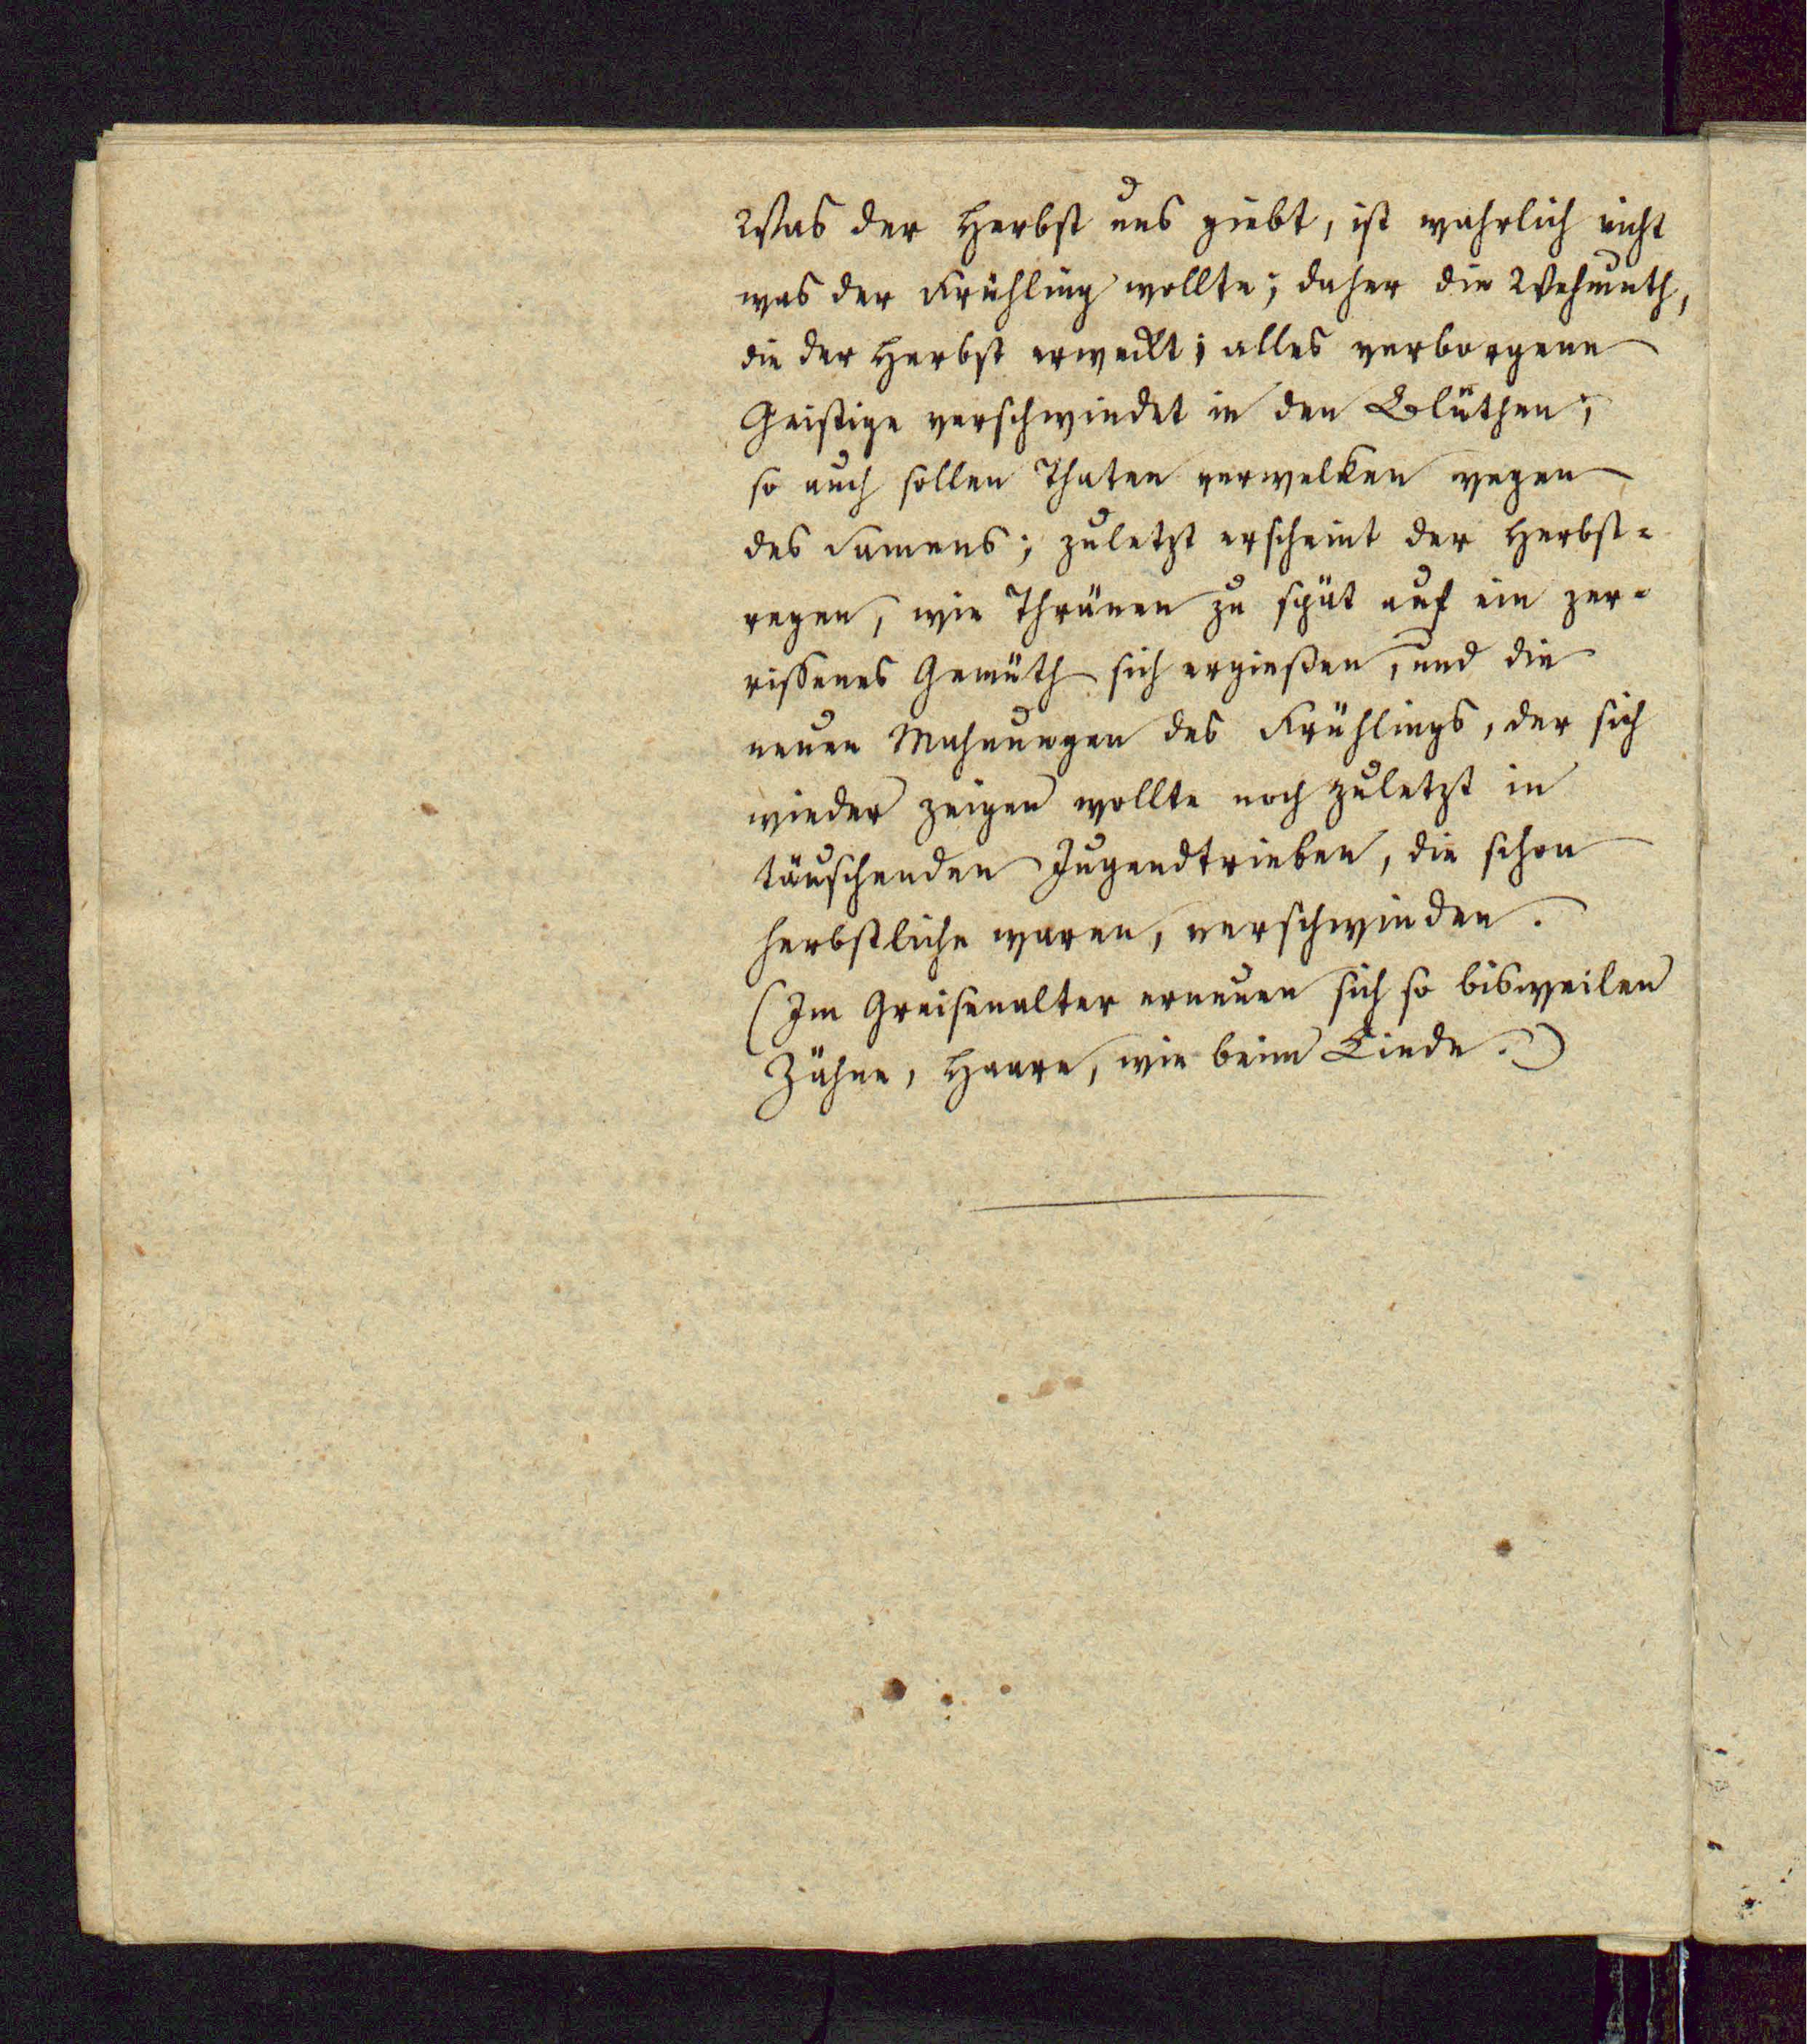 Was der Herbst uns giebt, ist wahrlich nicht
was der Frühling wollte; daher die Wehmuth,
die der Herbst erweckt; alles verborgene
Geistige verschwindet in den Blüthen;
so auch sollen Thaten verwelken wegen
des Samens; zuletzt erscheint der Herbst-
regen, wie Thränen zu spät auf ein zer-
rissenes Gemüth sich ergießen, und die
neuen Mahnungen des Frühlings, der sich
wieder zeigen wollte noch zuletzt in
täuschenden Jugendtrieben, die schon
herbstliche waren, verschwinden.
(Im Greisenalter erneuen sich so bisweilen
Zähne, Haare, wie beim Kinde.)